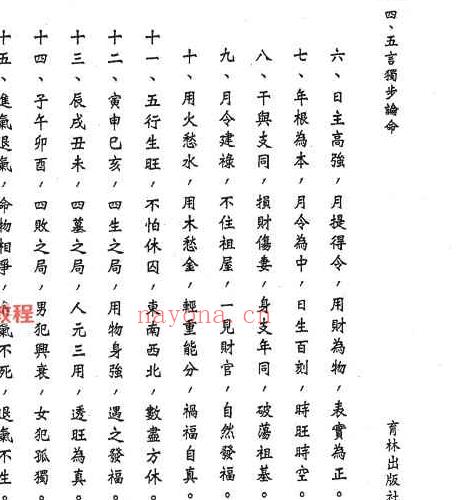 四、五言獨步論命
育林出版社
六、日主高強，月提得令，用財為物，表實為正。
七、年根為本，月令為中，日生百刻，時旺時空。
八、干與支同，損財傷妻，身支年同，破蕩祖基。
九、月令建祿，不住祖屋，一見財官，自然發福。
十、用火愁水，用木愁金，輕重能分，禍福自真。
十一、五行生旺，不怕休囚，東南西北，數盡方休。
十二、寅申巳亥，四生之局，用物身強，遇之發福。
十三、辰戌丑未，四墓之局，人元三用，透旺為真。
十四、子午卯酉，四敗之局，男犯興衰，女犯孤獨。
十五、進氣退氣，命物相爭，氣不死，退氣不生。
教程
nayona.cn